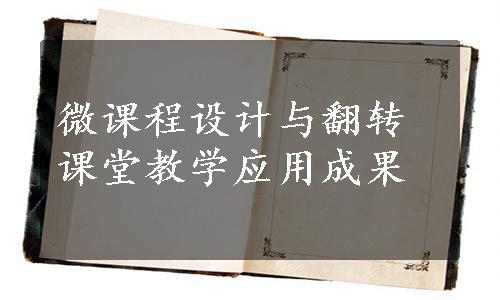 微课程设计与翻转
课堂教学应用成果